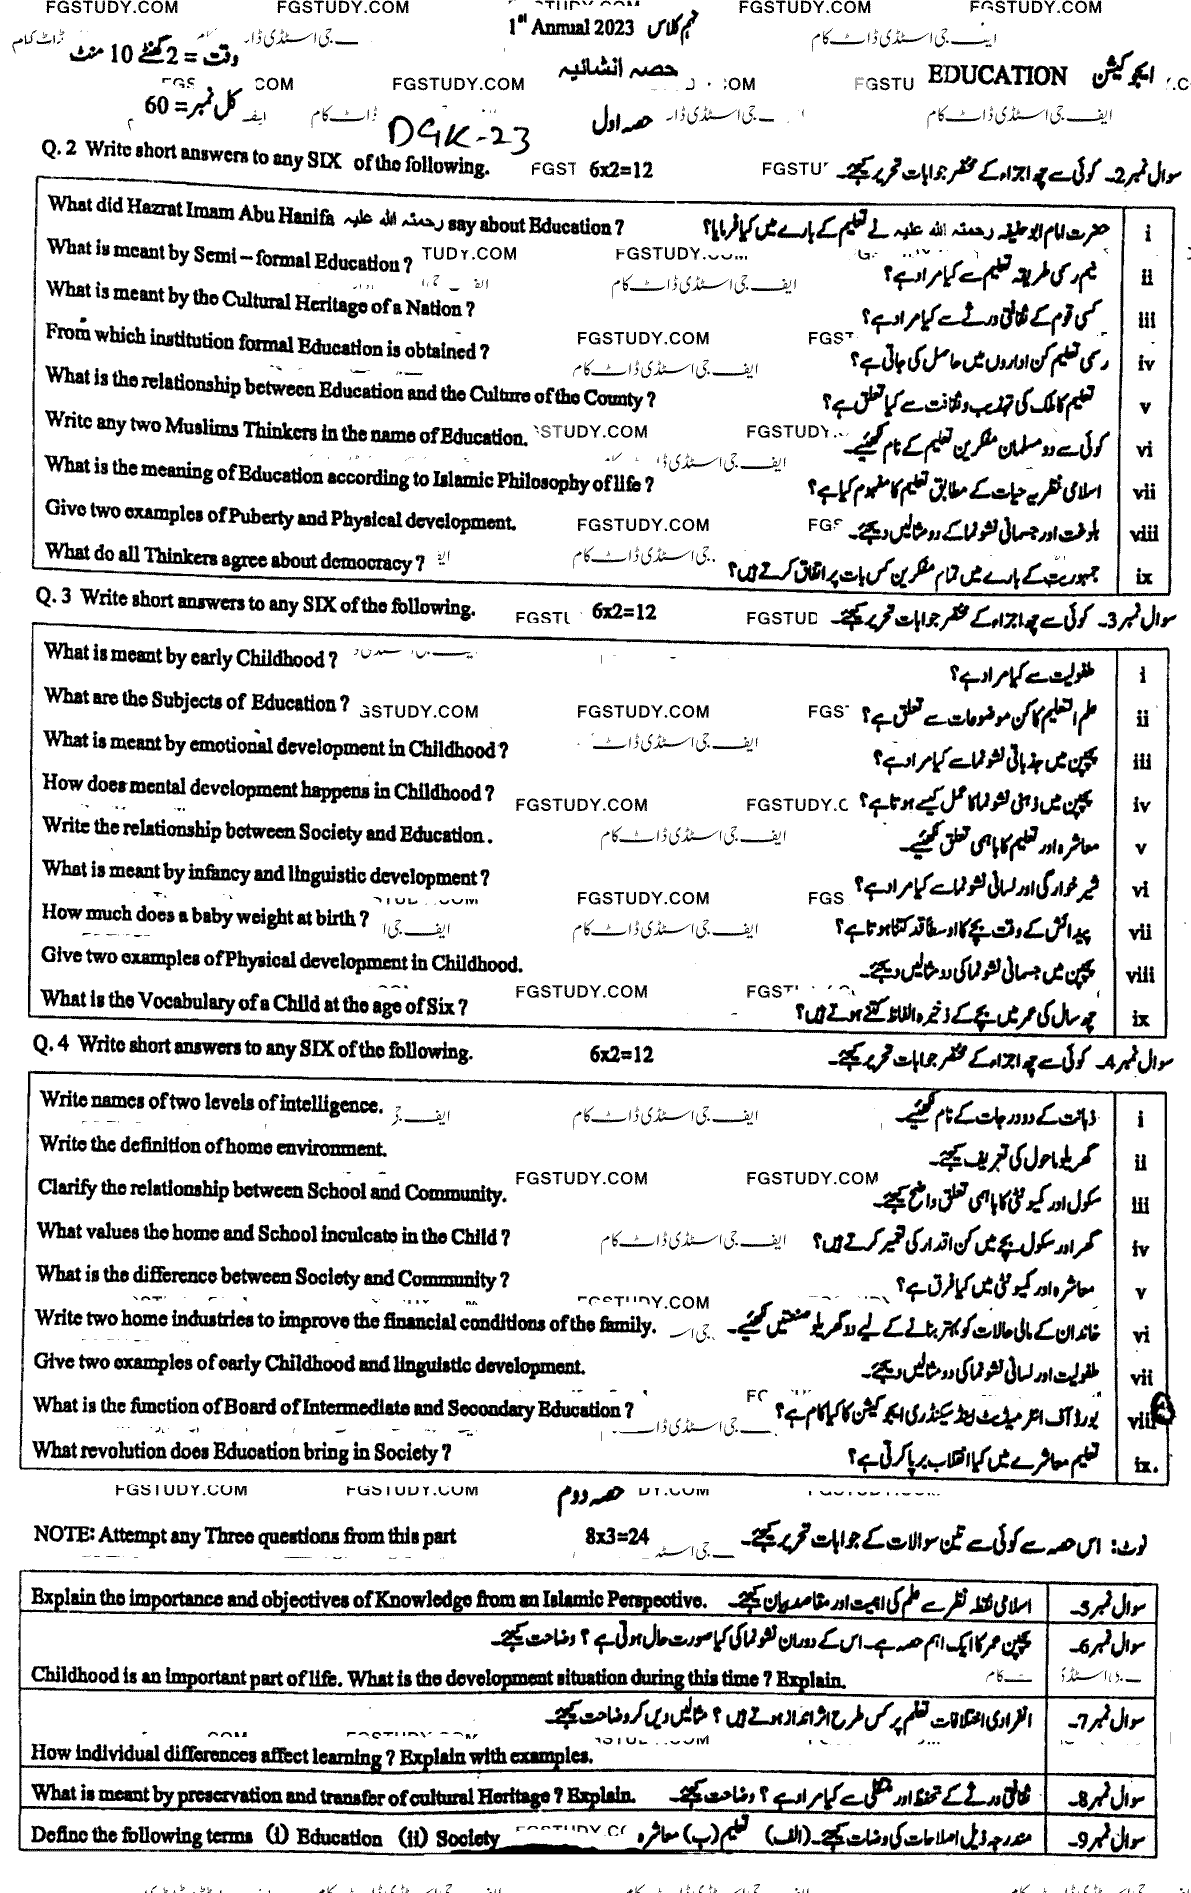 FGSTUDY.COM FGSTUDY.COM FGSTUDY.COM FGSTUDY.COM
1st Annual 2023 نہم کلاس
وقت = 2 گھنٹے 10 منٹ
حصہ انشائیہ
EDUCATION ایجوکیشن
FGSTUDY.COM
کل نمبر = 60
حصہ اول
DGK-23
Q. 2 Write short answers to any SIX of the following. 6x2=12 سوال نمبر 2۔ کوئی سے چھ اجزاء کے مختصر جوابات تحریر کیجئے۔
What did Hazrat Imam Abu Hanifa رحمتہ اللہ علیہ say about Education ? حضرت امام ابو حنیفہ رحمتہ اللہ علیہ نے تعلیم کے بارے میں کیا فرمایا؟ i
What is meant by Semi – formal Education ? نیم رسی طریقہ تعلیم سے کیا مراد ہے؟ ii
What is meant by the Cultural Heritage of a Nation ? کسی قوم کے ثقافتی ورثے سے کیا مراد ہے؟ iii
From which institution formal Education is obtained ? رسمی تعلیم کن اداروں میں حاصل کی جاتی ہے؟ iv
What is the relationship between Education and the Culture of the County ? تعلیم کا ملک کی تہذیب و ثقافت سے کیا تعلق ہے؟ v
Write any two Muslims Thinkers in the name of Education. کوئی سے دو مسلمان مفکرین تعلیم کے نام لکھئیے۔ vi
What is the meaning of Education according to Islamic Philosophy of life ? اسلامی نظریہ حیات کے مطابق تعلیم کا مفہوم کیا ہے؟ vii
Give two examples of Puberty and Physical development. بلوغت اور جسمانی نشوونما کے دو مثالیں دیجئے۔ viii
What do all Thinkers agree about democracy ? جمہوریت کے بارے میں تمام مفکرین کس بات پر اتفاق کرتے ہیں؟ ix
Q. 3 Write short answers to any SIX of the following. 6x2=12 سوال نمبر 3۔ کوئی سے چھ اجزاء کے مختصر جوابات تحریر کیجئے۔
What is meant by early Childhood ? طفولیت سے کیا مراد ہے؟ i
What are the Subjects of Education ? علم التعلیم کا کن موضوعات سے تعلق ہے؟ ii
What is meant by emotional development in Childhood ? بچپن میں جذباتی نشوونما سے کیا مراد ہے؟ iii
How does mental development happens in Childhood ? بچپن میں ذہنی نشوونما کا عمل کیسے ہوتا ہے؟ iv
Write the relationship between Society and Education . معاشرہ اور تعلیم کا باہمی تعلق لکھئیے۔ v
What is meant by infancy and linguistic development ? شیر خوارگی اور لسانی نشوونما سے کیا مراد ہے؟ vi
How much does a baby weight at birth ? پیدائش کے وقت بچے کا اوسطاً قد کتنا ہوتا ہے؟ vii
Give two examples of Physical development in Childhood. بچپن میں جسمانی نشوونما کی دو مثالیں دیجئے۔ viii
What is the Vocabulary of a Child at the age of Six ? چھ سال کی عمر میں بچے کے ذخیرہ الفاظ کتنے ہوتے ہیں؟ ix
Q. 4 Write short answers to any SIX of the following. 6x2=12 سوال نمبر 4۔ کوئی سے چھ اجزاء کے مختصر جوابات تحریر کیجئے۔
Write names of two levels of intelligence. ذہانت کے دو درجات کے نام لکھئیے۔ i
Write the definition of home environment. گھریلو ماحول کی تعریف کیجئے۔ ii
Clarify the relationship between School and Community. سکول اور کمیونٹی کا باہمی تعلق واضح کیجئے۔ iii
What values the home and School inculcate in the Child ? گھر اور سکول بچے میں کن اقدار کی تعمیر کرتے ہیں؟ iv
What is the difference between Society and Community ? معاشرہ اور کمیونٹی میں کیا فرق ہے؟ v
Write two home industries to improve the financial conditions of the family. خاندان کے مالی حالات کو بہتر بنانے کے لیے دو گھریلو صنعتیں لکھئیے۔ vi
Give two examples of early Childhood and linguistic development. طفولیت اور لسانی نشوونما کی دو مثالیں دیجئے۔ vii
What is the function of Board of Intermediate and Secondary Education ? بورڈ آف انٹرمیڈیٹ اینڈ سیکنڈری ایجوکیشن کا کیا کام ہے؟ viii
What revolution does Education bring in Society ? تعلیم معاشرے میں کیا انقلاب برپا کرتی ہے؟ ix.
حصہ دوم
NOTE: Attempt any Three questions from this part 8x3=24 نوٹ: اس حصہ سے کوئی سے تین سوالات کے جوابات تحریر کیجئے۔
Explain the importance and objectives of Knowledge from an Islamic Perspective. اسلامی نقطہ نظر سے علم کی اہمیت اور مقاصد بیان کیجئے۔ سوال نمبر 5۔
بچپن عمر کا ایک اہم حصہ ہے۔ اس کے دوران نشوونما کی کیا صورت حال ہوتی ہے ؟ وضاحت کیجئے۔ سوال نمبر 6۔
Childhood is an important part of life. What is the development situation during this time ? Explain.
انفرادی اختلافات تعلم پر کس طرح اثر انداز ہوتے ہیں ؟ مثالیں دیں کر وضاحت کیجئے۔ سوال نمبر 7۔
How individual differences affect learning ? Explain with examples.
What is meant by preservation and transfer of cultural Heritage ? Explain. ثقافتی ورثے کے تحفظ اور منتقلی سے کیا مراد ہے ؟ وضاحت کیجئے۔ سوال نمبر 8۔
Define the following terms (i) Education (ii) Society مندرجہ ذیل اصلاحات کی وضات کیجئے۔ (الف) تعلیم (ب) معاشرہ سوال نمبر 9۔